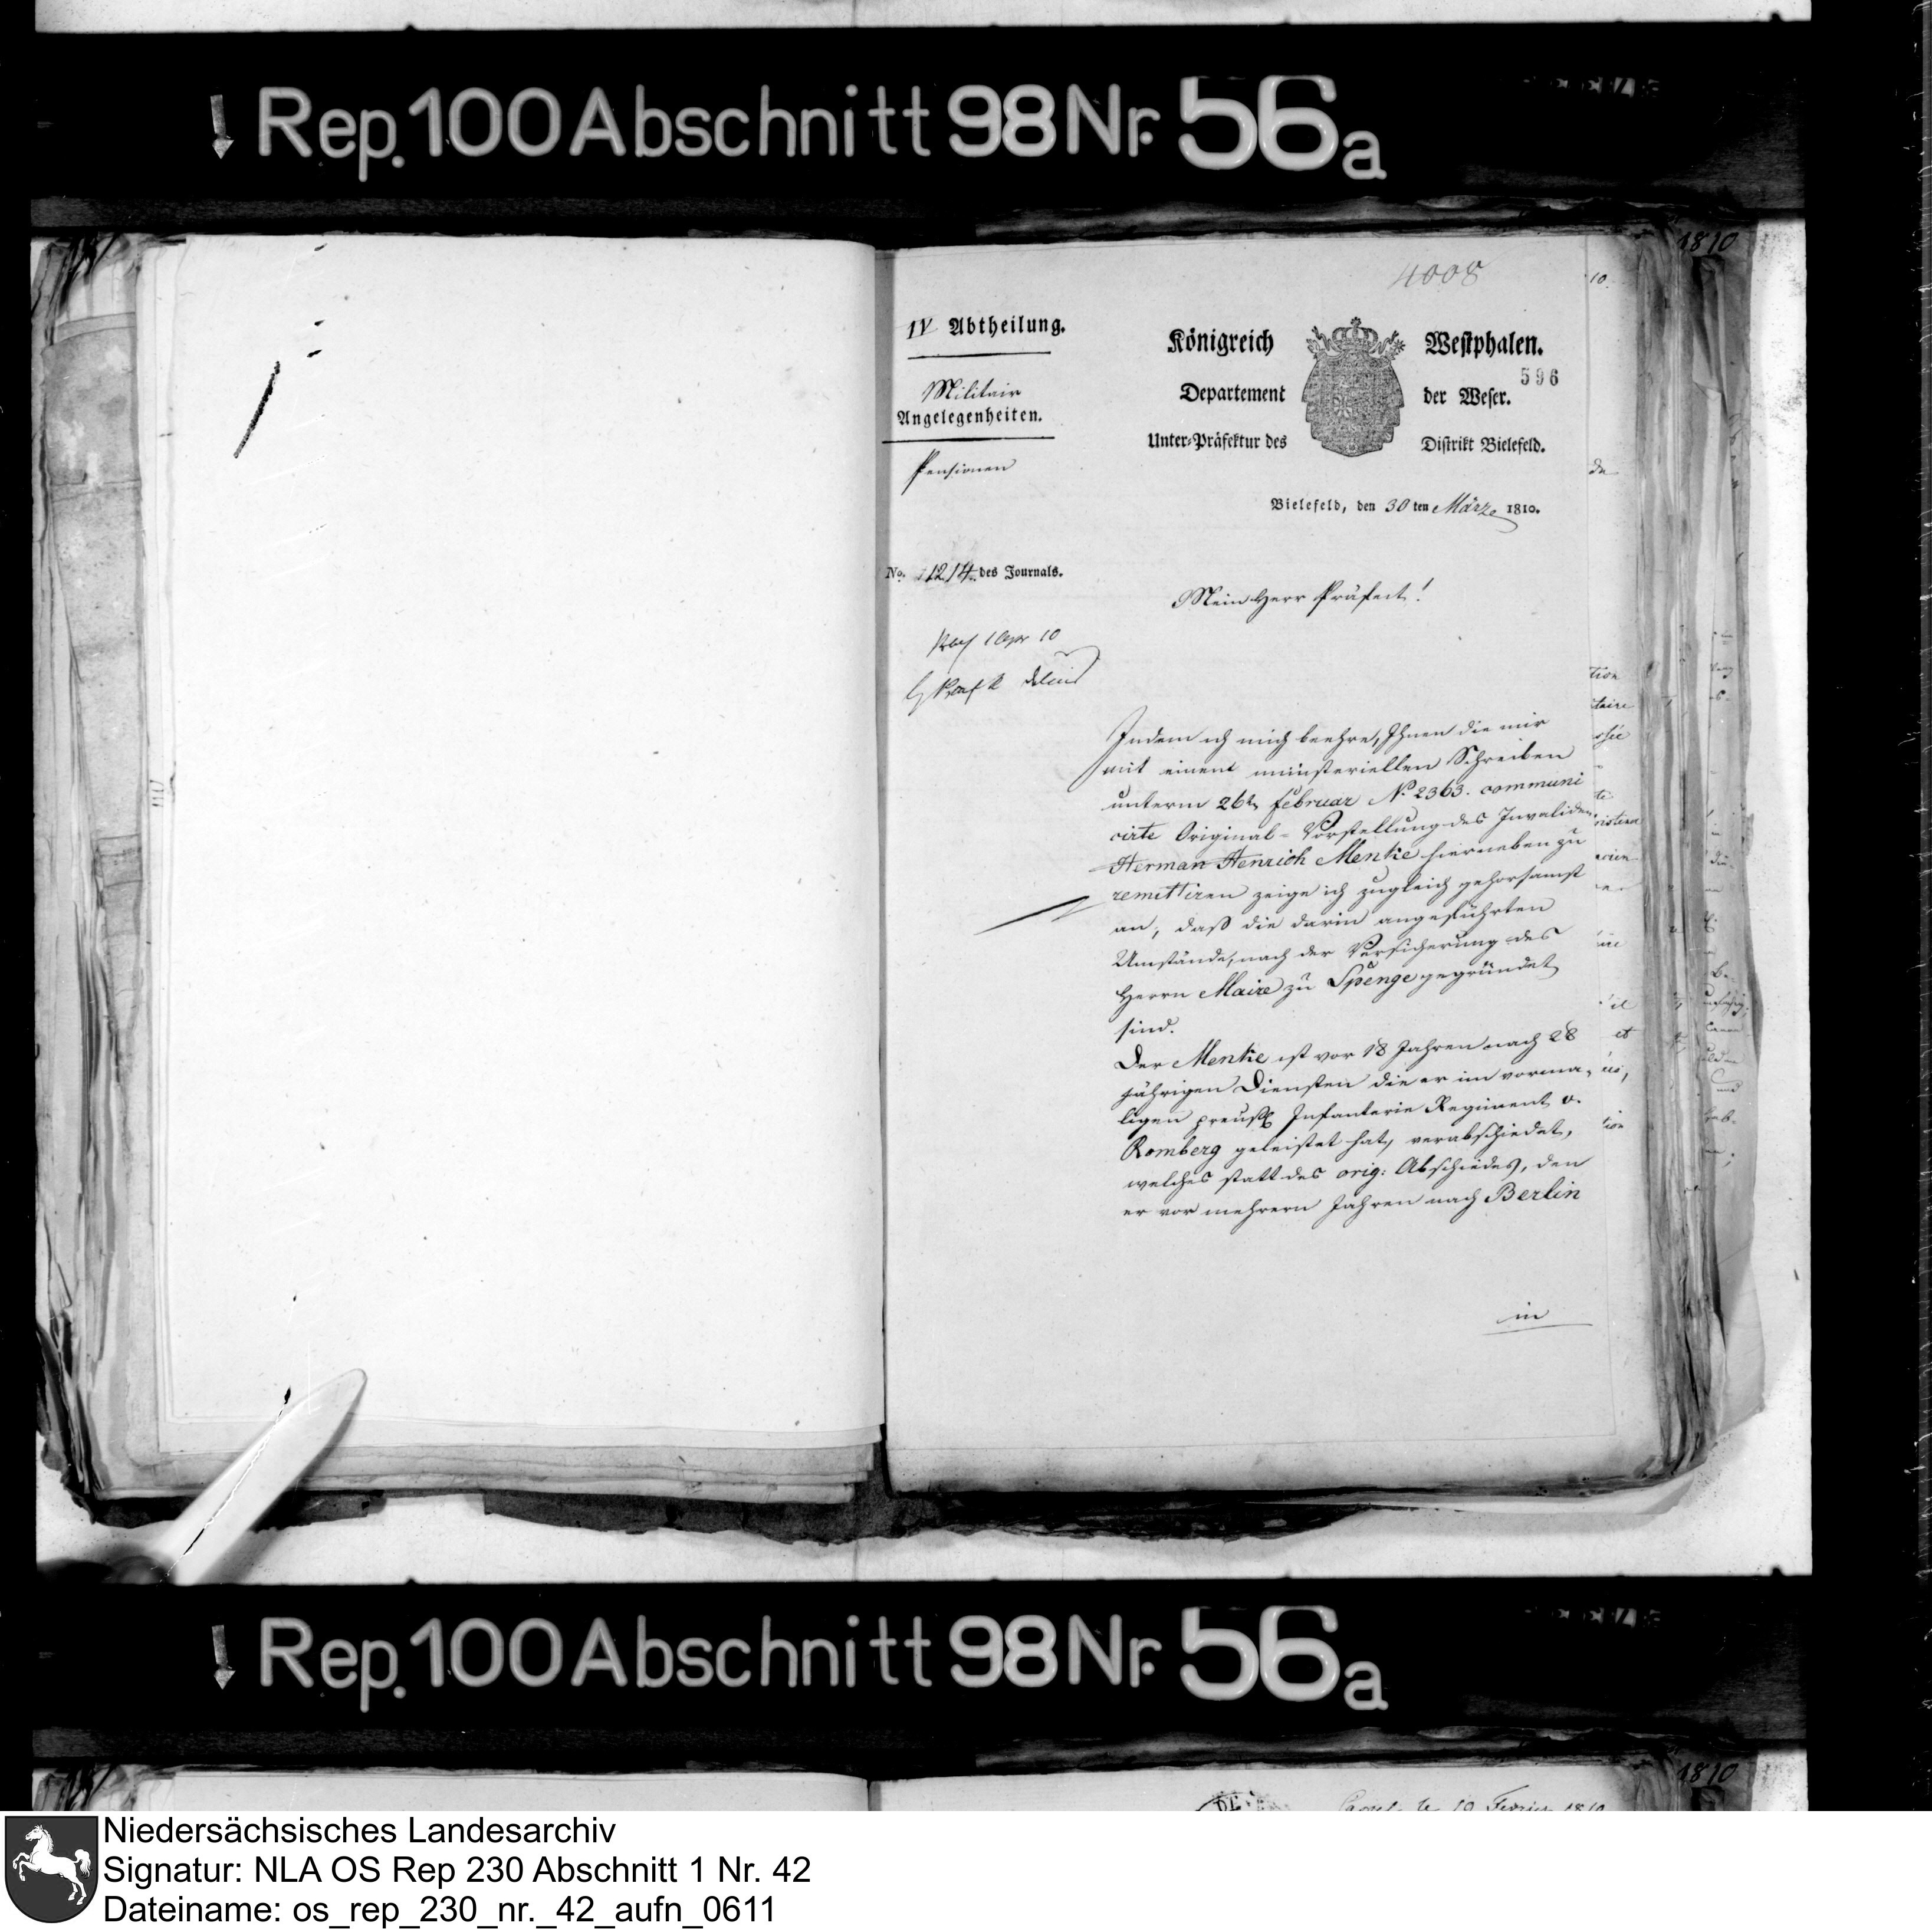 Rep. 100 Abschnitt 98 Nr. 56a
1810
4008
IV Abtheilung.
Militair
Angelegenheiten.
Pensionen
Königreich Westphalen.
596
Departement der Weser.
Unter-Präfektur des Distrikt Bielefeld.
Bielefeld, den 30 ten Märze 1810.
No. 1214. des Journals.
Mein Herr Präfect!
10
Delius
Indem ich mich beehre, Ihnen die mir
mit einem ministeriellen Schreiben
unterm 26t Februar No 2363. communi
cirte Original-Vorstellung des Invaliden
Herman Henrich Menke hierneben zu
remittiren zeige ich zugleich gehorsamst
an, daß die darin angeführten
Umstände, nach der Versicherung des
Herrn Maire zu Spenge gegründet
sind.
Der Menke ist vor 18 Jahren nach 28
jährigen Diensten die er im vorma-
ligen preuß Infanterie Regiment v.
Romberg geleistet hat, verabschiedet,
welches statt des orig: Abschiedes, den
er vor mehrern Jahren nach Berlin
in
Rep. 100 Abschnitt 98 Nr. 56a
1810
Niedersächsisches Landesarchiv
Signatur: NLA OS Rep 230 Abschnitt 1 Nr. 42
Dateiname: os_rep_230_nr._42_aufn_0611